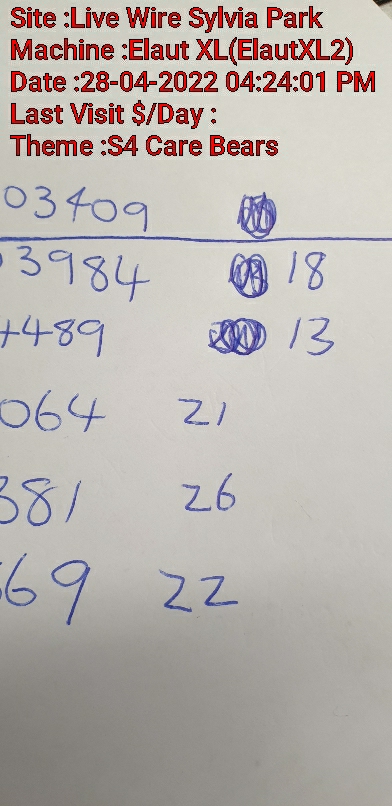 Site :Live Wire Sylvia Park
Machine :Elaut XL(ElautXL2)
Date :28-04-2022 04:24:01 PM
Last Visit $/Day :
Theme :S4 Care Bears
03409
3984 18
4489 13
064 21
381 26
69 22